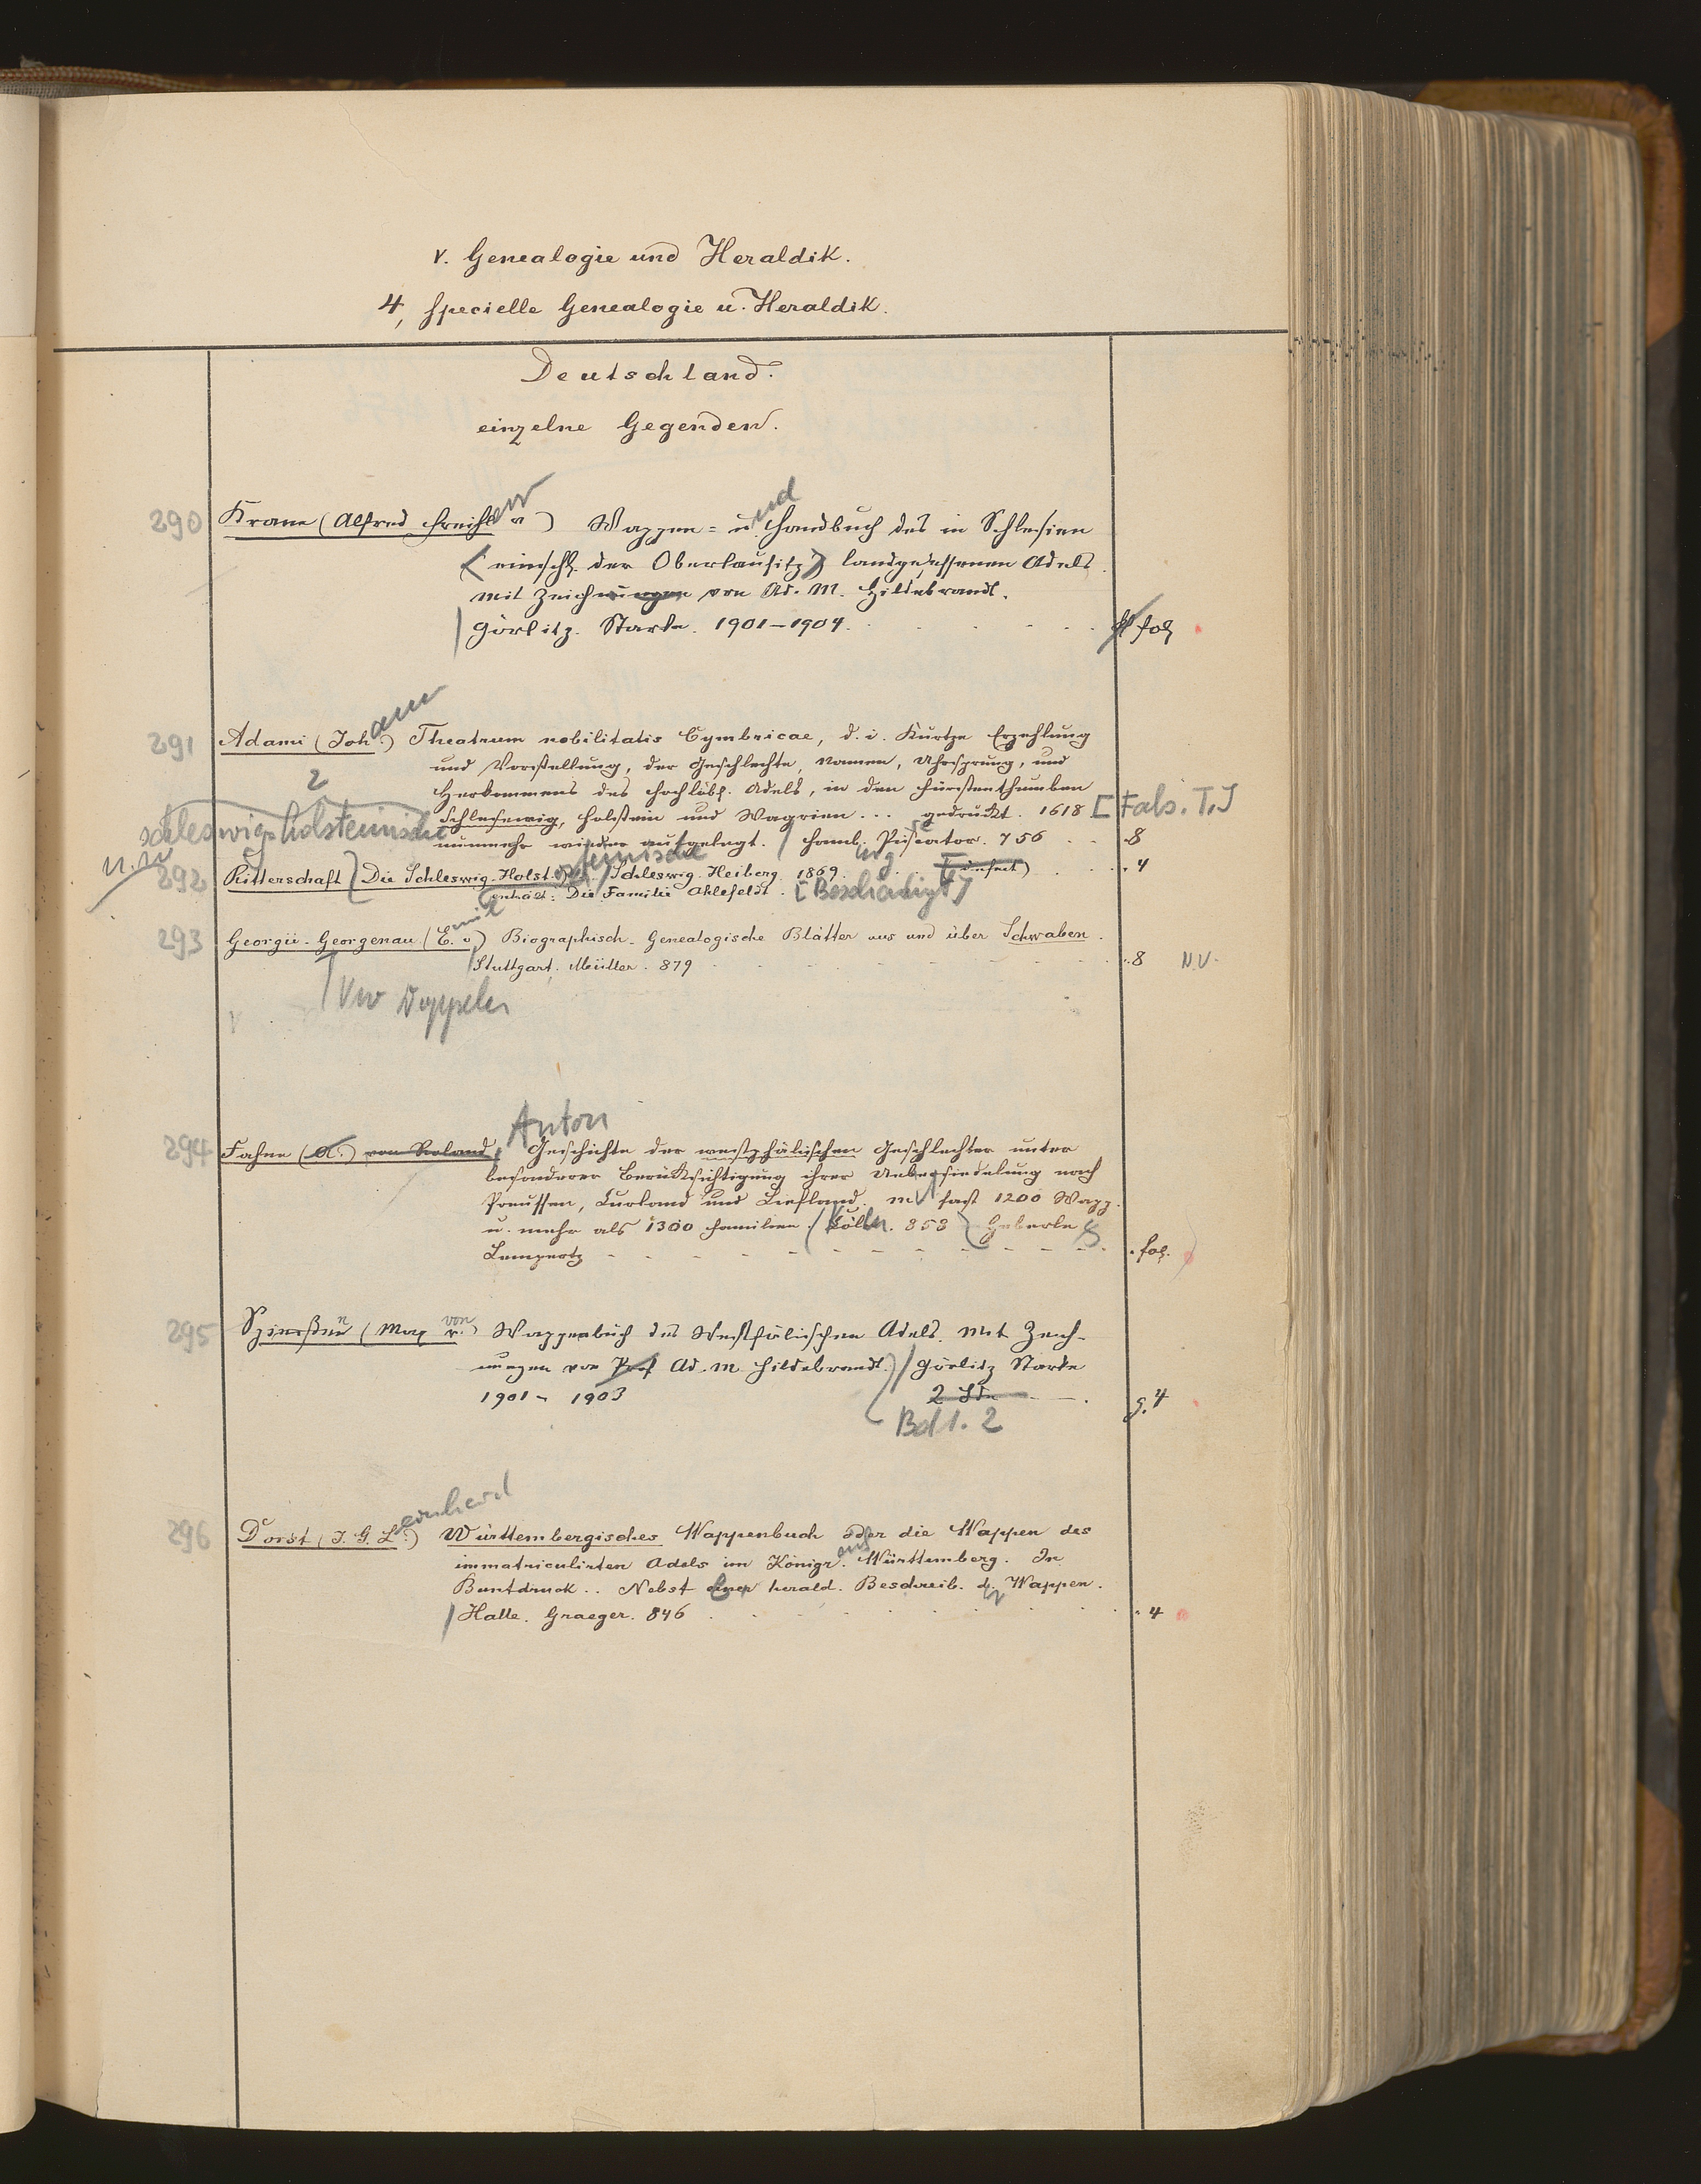 V. Genealogie und Heraldik.
4, Specielle Genealogie u. Heraldik.
Deutschland.
einzelne Gegenden.
290 Krane (Alfred Freiherr v) Wappen= u und Handbuch des in Schlesien
(einschl. der Oberlausitz) landgesessenen Adels.
mit Zeichnungen von Ad. M. Hildebrandt.
Görlitz. Starke. 1901-1904. fol
291 Adami (Johann) Theatrum nobilitatis Cymbricae, d. i. Kurtze Erzehlung
und Vorstellung, der Geschlechte, Namen, Uhrsprung, und
Herkommens des Hochlöbl. Adels, in den Fürstenthumben
Schleswig, Holstein und Wagrien... gedruckt. 1618 [Fals. T.]
nunmehr wieder aufgelegt. Hamb. Piscator. 756 8
2
schleswig-holsteinische
292 Ritterschaft Die Schleswig-Holsteinische Schleswig. Heiberg. 1869. (defect) 4
enthält: Die Familie Ahlefeldt. [Beschädigt]
293 Georgii-Georgenau (Emil v.) Biographisch-Genealogische Blätter aus und über Schwaben.
Stuttgart. Müller. 879 8 N.V.
Vw Doppelr
294 Fahne (A.) von Roland, Anton Geschichte der westphälischen Geschlechter unter
besonderer Berücksichtigung ihrer Uebersiedelung nach
Preussen, Curland und Liefland. m fast 1200 Wapp.
u. mehr als 1300 Familien. Köln. 858 Heberle &
Lempertz fol.
295 Spiessen (Max von) Wappenbuch des Westfälischen Adels. Mit Zeich-
nungen von Prof Ad. M. Hildebrandt. Görlitz Starke
1901 - 1903 2 Bde g. 4
Bd 1. 2
296 Dorst (J. G. Leonhard) Württembergisches Wappenbuch oder die Wappen des
immatriculirten Adels im Königr. Württemberg. In
Buntdruck.. Nebst einer herald. Beschreib. d. Wappen.
Halle. Graeger. 846 4